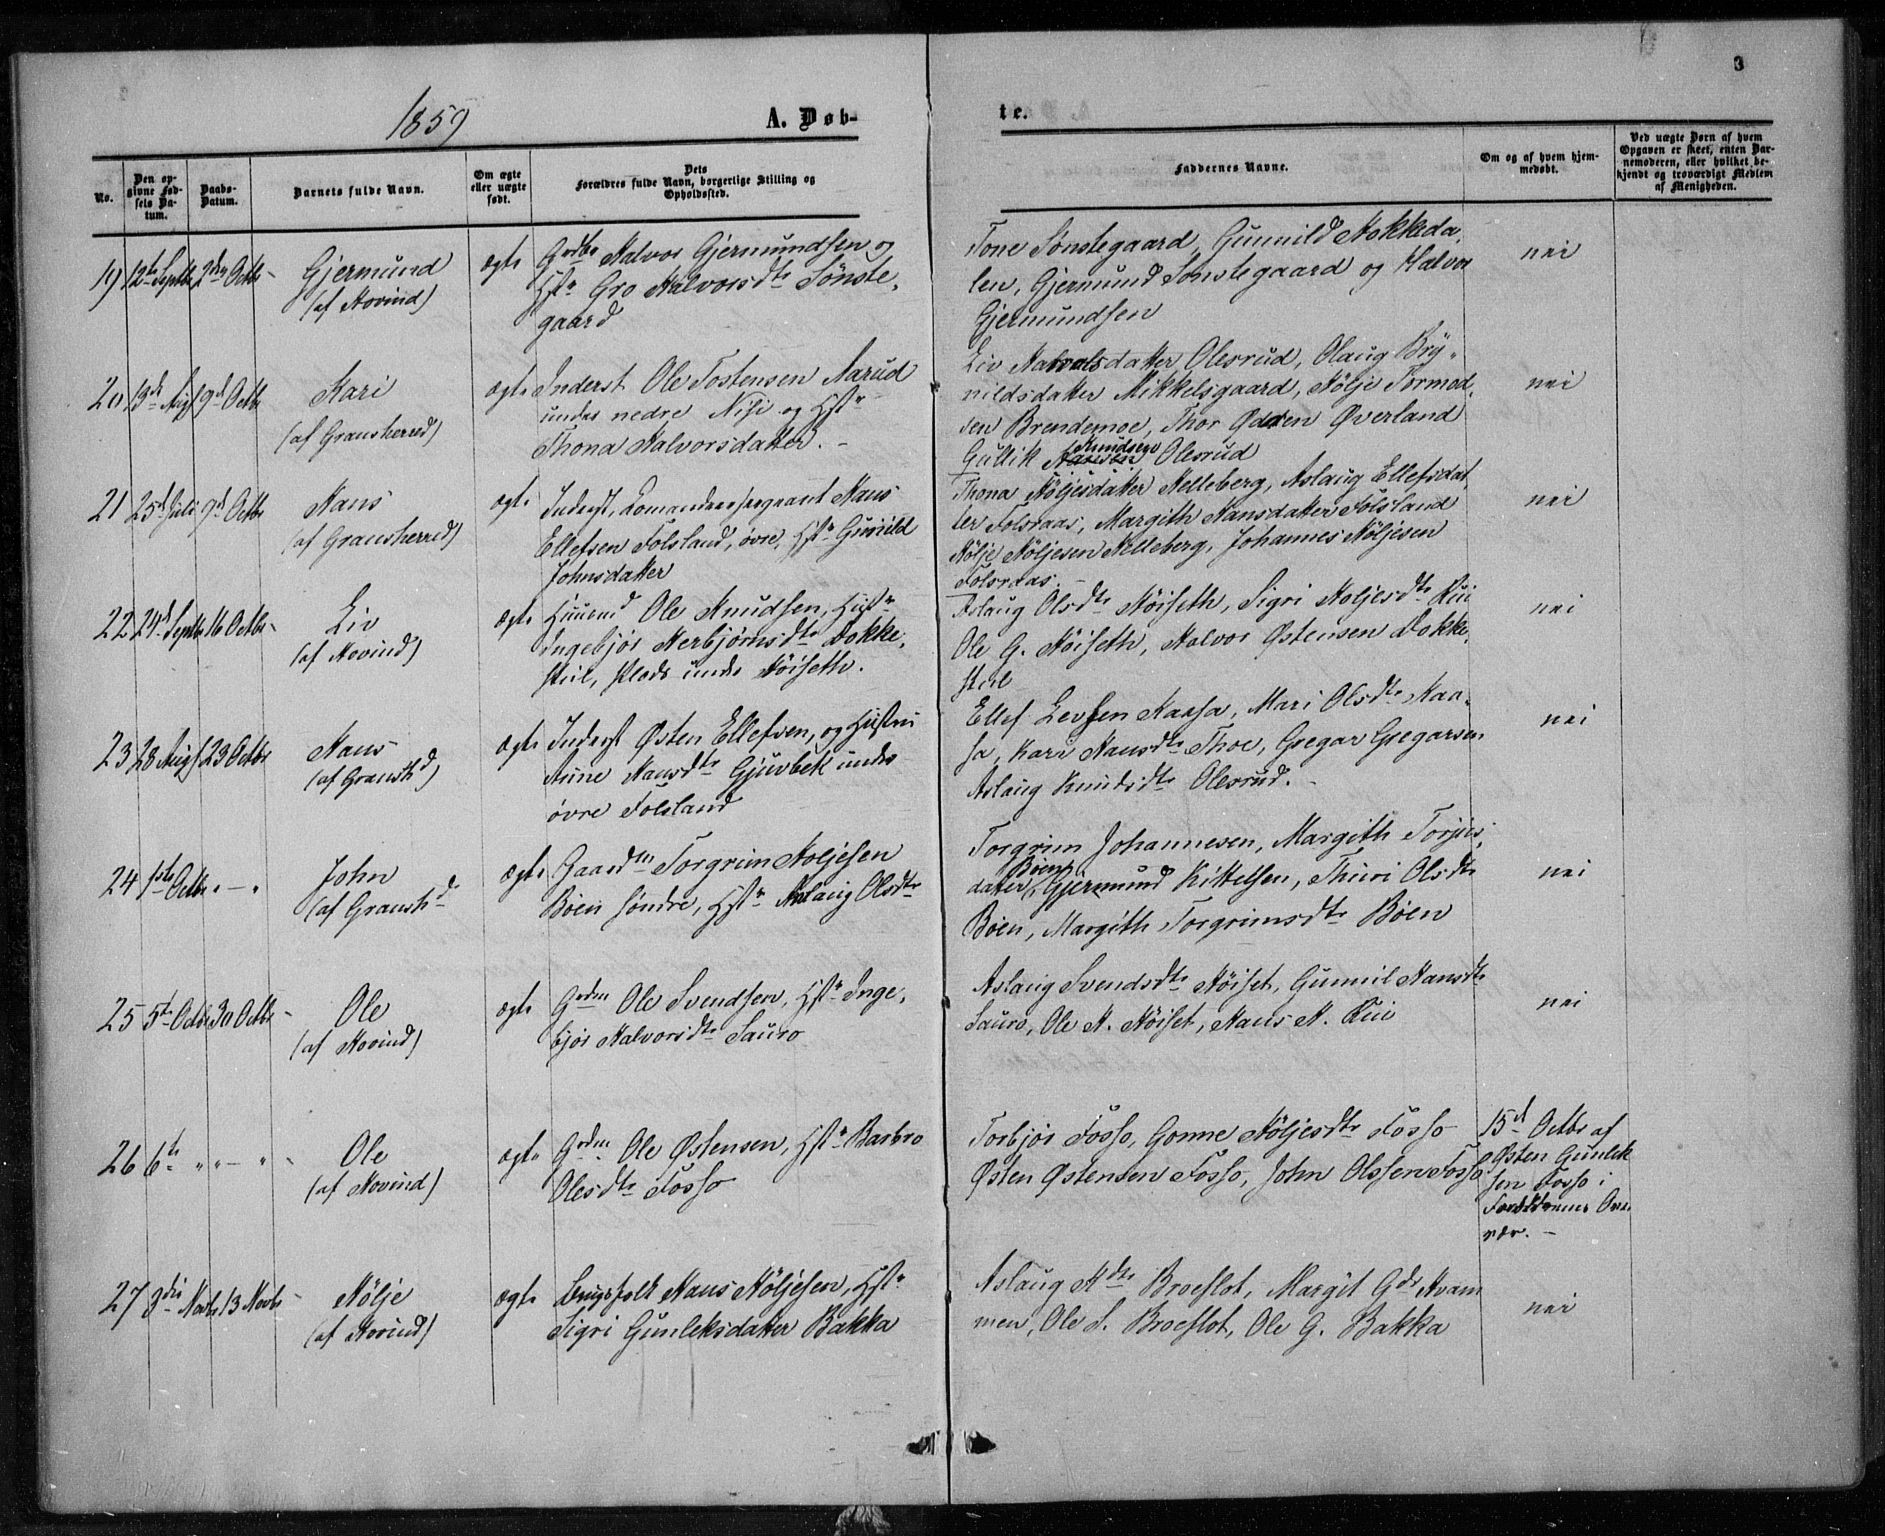 3
1859
A. Døb-
te.
No.
Den op-
givne Fød-
sels Da-
tum.
Daabs-
Datum.
Barnets fulde Navn.
Om ægte
eller uægte
født.
Dets
Forældres fulde Navn, borgerlige Stilling og
Opholdssted.
Faddernes Navne.
Om og af hvem hjem-
medøbt.
Ved uægte Børn af hvem
Opgaven er skeet, enten Bar-
nemoderen, eller hvilket be-
kjendt og troværdigt Medlem
af Menigheden.
19 12te Septbr 2den Octbr
Gjermund
(af Hovind)
ægte
Halvor Gjermundsen og
Hstr Gro Halvorsdtr Sønste-
gaard
Tone Sønstegaard, Gunnild Hokkeda-
len, Gjermund Sønstegaard og Halvor
Gjermundsen
nei
20 13de Aug 9de Octbr
Kari
(af Gransherred)
ægte
Inderst Ole Tostensen Aarud
under nedre Nisi og Hstr
Thona Halvorsdatter. -
Liv Halvorsdatter Olesrud, Olaug Bry-
nildsdatter Mikkelsgaard, Høljе Tormod-
sen Brendemoe, Thor Øverland
Gullik Knudsen Olesrud
nei
21 25de Juli 9de Octbr
Hans
(af Gransherred)
ægte
Inderst, Comandeersergeant Hans
Ellefsen Folsland, øvre, Hstr Gunild
Johnsdatter
Thona Høljesdatter Helleberg, Aslaug Ellefsdat-
ter Folsraas, Margith Hansdatter Folsland
Hølje Høljesen Helleberg, Johannes Høljesen
Folsraas. -
nei
22 24de Septbr 16 Octbr
Liv
(af Hovind)
ægte
Huusmd Ole Knudsen, Hustr
Ingebjør Herbjørnsdtr Dokke-
stul, Plads under Høiseth.
Aslaug Olsdtr Høiseth, Sigri Holjesdtr Rui
Ole G. Høiseth, Halvor Østensen Dokke-
stul
nei
23 28 Augs 23 Octbr
Hans
(af Gransh.d)
ægte
Inderst Østen Ellefsen, og Hustru
Anne Hansdtr Gjuvbek under
øvre Folsland
Ellef Levsen Kaasa, Mari Olsdtr Kaa-
sa, Kari Hansdtr Thoe, Gregar Gregarsen
Aslaug Knudsdtr Olesrud. -
nei
24 1ste Octbr " - "
John
(af Gransh.d)
ægte
Gaardm Torgrim Holjesen
Bøen søndre, Hstr Aslaug Olsdtr
Torgrim Johannesen, Margith Torjus-
datter Bøen, Gjermund Kittelsen, Thuri Olsdtr
Bøen, Margith Torgrimsdtr Bøen
nei
25 5te Octbr 30 Octbr
Ole
(af Hovind)
ægte
Grdm Ole Svendsen, Hstr Inge-
bjør Halvorsdtr Sauro
Aslaug Svendsdtr Høiset, Gunnil Hansdtr
Sauro, Ole H. Høiset, Hans H. Rui
nei
26 6te " " - " -
Ole
(af Hovind)
ægte
Grdm Ole Østensen, Hstr Barbro
Olesdtr Fosso
Torbjør Fosso, Gonne Høljesdtr Fosso
Østen Østensen Fosso, John Olssen Fosso
15d Octbr af
Østen Gunlek-
sen Fosso i
Forældrenes Over-
vær. -
27 3die Novbr 13 Novbr
Hølje
(af Hovind)
ægte
Brugsfolk Hans Høljesen, Hstr
Sigri Gunleksdatter Bakka
Aslaug Hdtr Broeflot, Margit Gdtr Kvam-
men, Ole S. Broeflot, Ole G. Bakka
nei